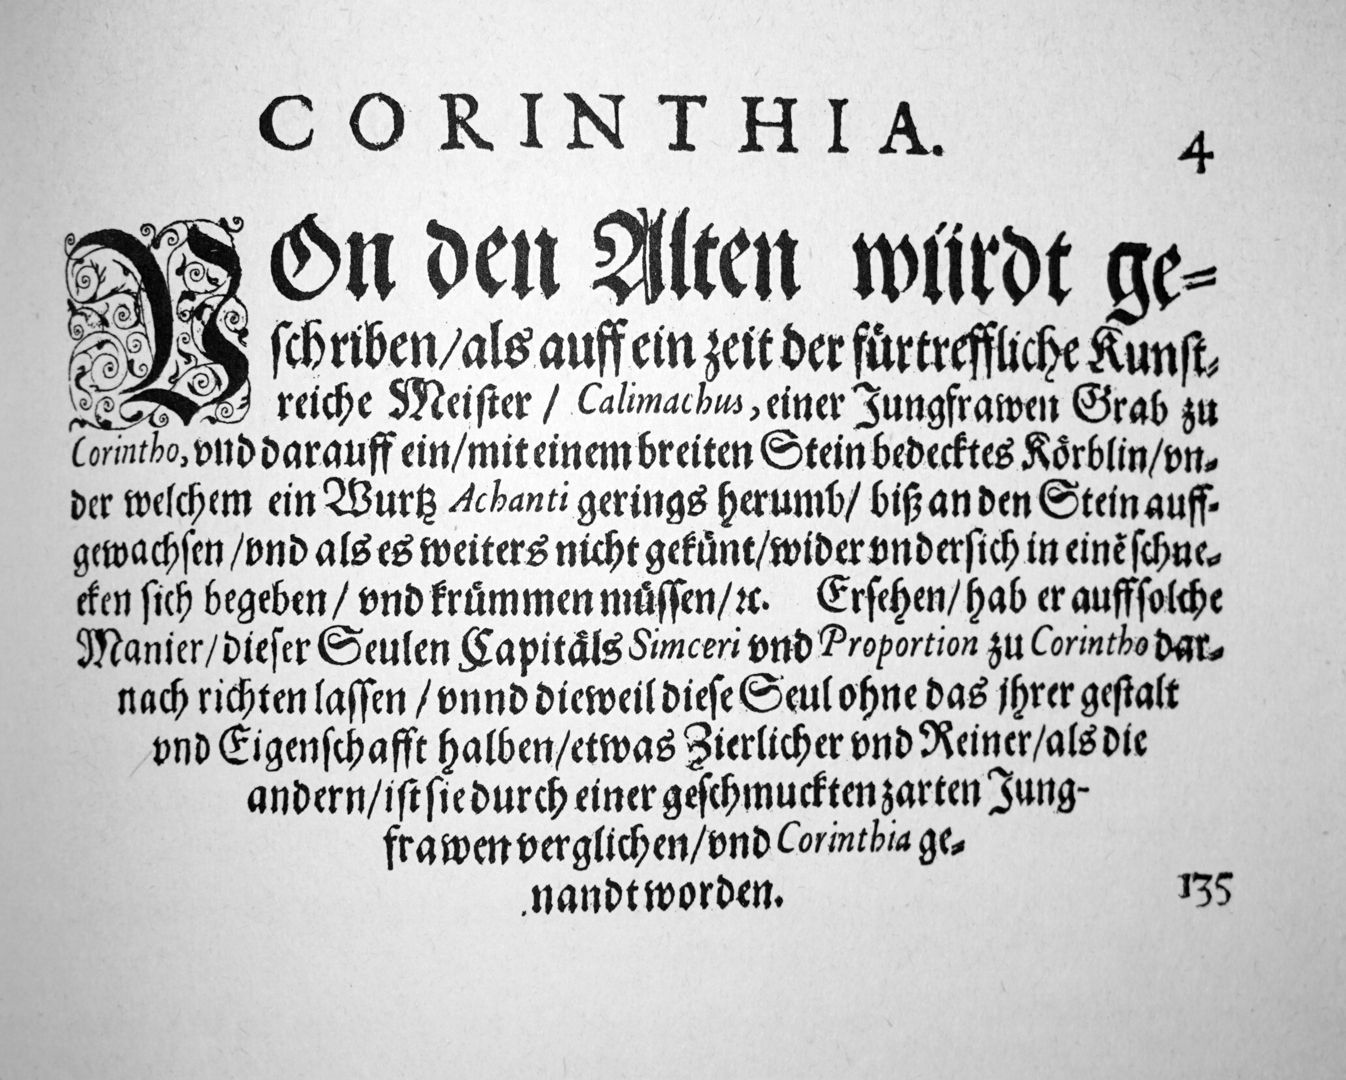 CORINTHIA.
4
VOn den Alten würdt ge-
schriben/als auff ein zeit der fürtreffliche Kunst-
reiche Meister / Calimachus, einer Jungfrawen Grab zu
Corintho, vnd darauff ein/mit einem breiten Stein bedecktes Körblin/vn-
der welchem ein Wurtz Achanti gerings herumb/ biß an den Stein auff-
gewachsen /vnd als es weiters nicht gekünt/wider vndersich in einē schne-
cken sich begeben/ vnd krümmen müssen/ꝛc. Ersehen/ hab er auff solche
Manier/dieser Seulen Capitäls Simceri vnd Proportion zu Corintho dar-
nach richten lassen / vnnd dieweil diese Seul ohne das jhrer gestalt
vnd Eigenschafft halben/etwas Zierlicher vnd Reiner/als die
andern/ist sie durch einer geschmuckten zarten Jung-
frawen verglichen/vnd Corinthia ge-
nandt worden.
135